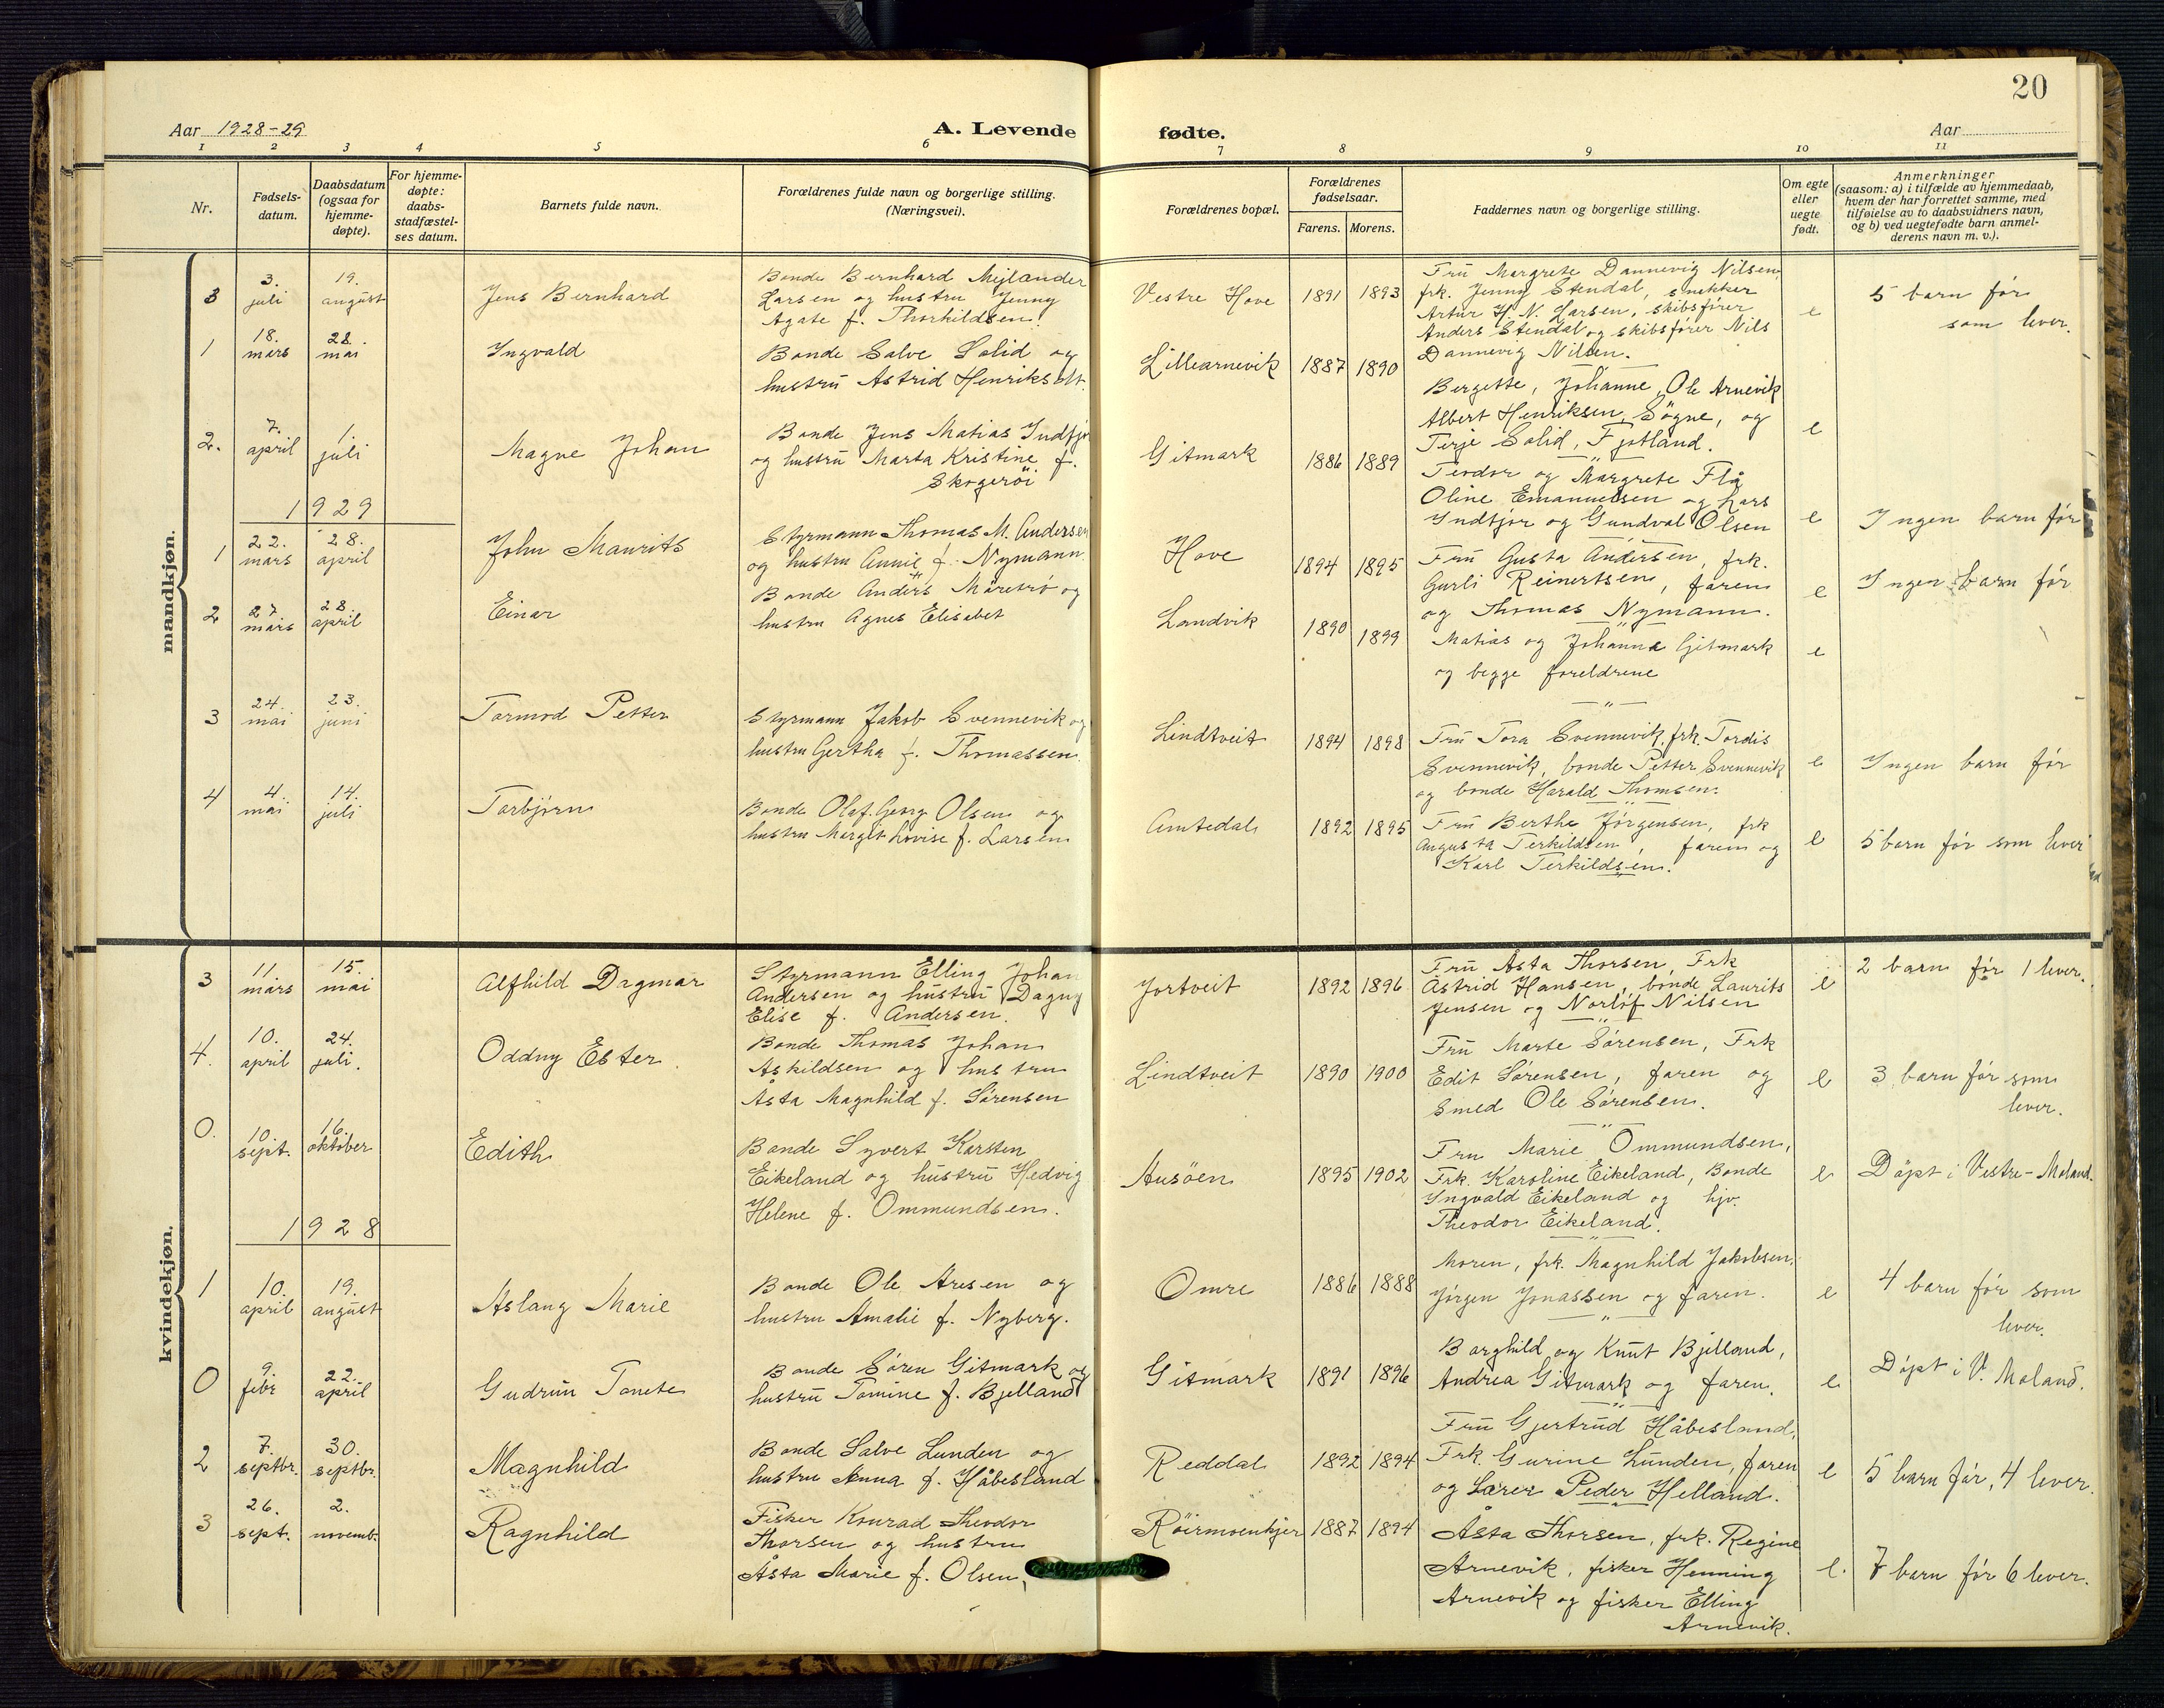 20
Aar 1928-29
A. Levende fødte.
Aar
1 2 3 4 5 6 7 8 9 10 11
Nr.
Fødsels-
datum.
Daabsdatum
(ogsaa for
hjemme-
døpte).
For hjemme-
døpte:
daabs-
stadfæstel-
ses datum.
Barnets fulde navn.
Forældrenes fulde navn og borgerlige stilling.
(Næringsvei).
Forældrenes bopæl.
Forældrenes
fødselsaar.
Farens. Morens.
Faddernes navn og borgerlige stilling.
Om egte
eller
uegte
født.
Anmerkninger
(saasom: a) i tilfælde av hjemmedaab,
hvem der har forrettet samme, med
tilføielse av to daabsvidners navn,
og b) ved uegtefødte barn anmel-
derens navn m. v.).
mandkjøn.
3
3.
juli
19.
august
Jens Bernhard
Bonde Bernhard Mejlænder
Larsen og hustru Jenny
Agate f. Thorkildsen.
Vestre Hove
1891 1893
Fru Margrete Dannevig Nilsen,
frk. Jenny Stendal, snekker
Artur H. N. Larsen, skibsfører
Anders Stendal og skibsfører Nils
Dannevig Nilsen.
e
5 barn før
som lever.
1
18.
mars
28.
mai
Ingvald
Bonde Salve Solid og
hustru Astrid Henriksdtr.
Lillearnevik
1887 1890
Bergette, Johanne, Ole Arnevik
Albert Henriksen, Søgne, og
Terje Solid, Fjotland.
e
2.
7.
april
1.
juli
Magne Johan
Bonde Jens Matias Indtjør
og hustru Marta Kristine f.
Skogerøi
Gitmark
1886 1889
Teodor og Margrete Flå
Oline Emanuelsen og Lars
Indtjør og Gundval Olsen
e
Ingen barn før
1929
1
22.
mars
28.
april
John Maurits
Styrmann Thomas M. Andersen
og hustru Annie f. Nymann
Hove
1894 1895
Fru Gusta Andersen, frk.
Gurli Reinertsen, faren
og Thomas Nymann.
e
Ingen barn før
2
27.
mars
28.
april
Einar
Bonde Anders Måretrø og
hustru Agnes Elisabet
Landvik
1890 1899
Matias og Johanna Gitmark
og begge foreldrene
e
3
24.
mai
23.
juni
Tormod Petter
Styrmann Jakob Svennevik og
hustru Gertha f. Thomassen.
Lindtveit
1894 1898
Fru Tora Svennevik, frk. Tordis
Svennevik, bonde Petter Svennevik
og bonde Harald Thomsen.
e
Ingen barn før
4
4.
mai
14.
juli
Torbjørn
Bonde Olaf Georg Olsen og
hustru Margit Lovise f. Larsen
Amtedal
1892 1895
Fru Berthe Jørgensen, frk
Augusta Terkildsen, faren og
Karl Terkildsen.
e
5 barn før som lever
kvindekjøn.
3
11.
mars
15.
mai
Alfhild Dagmar
Styrmann Elling Johan
Andersen og hustru Dagny
Elise f. Andersen.
Jortveit
1892 1896
Fru Asta Thorsen, Frk
Astrid Hansen, bonde Laurits
Jensen og Norlof Nilsen
e
2 barn før 1 lever.
4.
10.
april
24.
juli.
Oddny Ester
Bonde Thomas Johan
Askildsen og hustru
Åsta Magnhild f. Sørensen
Lindtveit
1890 1900
Fru Marte Sørensen, Frk
Edit Sørensen, faren og
Smed Ole Sørensen.
e
3 barn før som
lever.
0.
10.
sept.
16.
oktober
Edith
Bonde Syvert Karsten
Eikeland og hustru Hedvig
Helene f. Ommundsen.
Ausöen
1895 1902
Fru Marie Ommundsen,
Frk. Karoline Eikeland, Bonde
Ingvald Eikeland og hjv.
Theodor Eikeland.
e
Døpt i Vestre-Moland.
1928
1
10.
april
19.
august
Aslaug Marie
Bonde Ole Aresen og
hustru Amalie f. Nyberg.
Omre
1886 1888
Moren, frk. Magnhild Jakobsen,
Jørgen Jonassen og faren.
e
4 barn før som
lever.
0
9.
febr
22.
april
Gudrun Tonete
Bonde Søren Gitmark og
hustru Tomine f. Bjelland
Gitmark
1891 1896
Borghild og Knut Bjelland,
Andrea Gitmark og faren.
e
Døpt i V. Moland.
2
7.
septbr.
30.
septbr.
Magnhild
Bonde Salve Lunden og
hustru Anna f. Håbesland
Reddal
1892 1894
Fru Gjertrud Håbesland,
Frk. Gurine Lunden, faren
og Lærer Peder Helland.
e
5 barn før, 4 lever.
3
26.
sept.
2.
novemb.
Ragnhild
Fisker Konrad Theodor
Thorsen og hustru
Åsta Marie f. Olsen,
Röirmoenkjer
1887 1894
Åsta Thorsen, frk. Regine
Arnevik, fisker Henning
Arnevik og fisker Elling
Arnevik.
e.
7 barn før 6 lever.